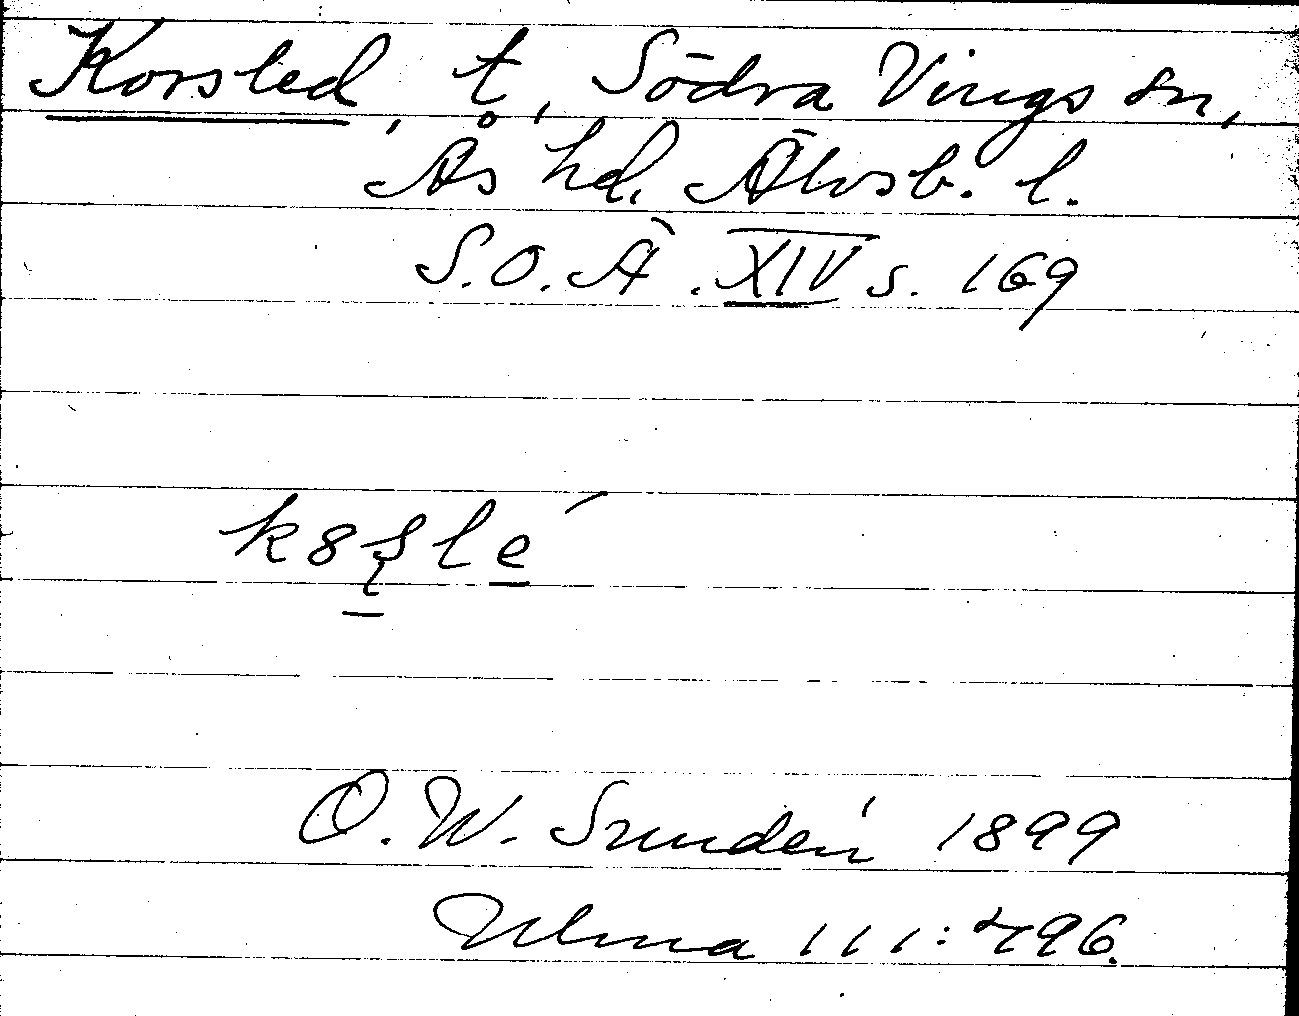 Korsled, t, Södra Vings sn,
Ås hd. Älvsb. l.
S.O.Ä. XIV s. 169
O.W. Sundén 1899
Ulma 111:496.